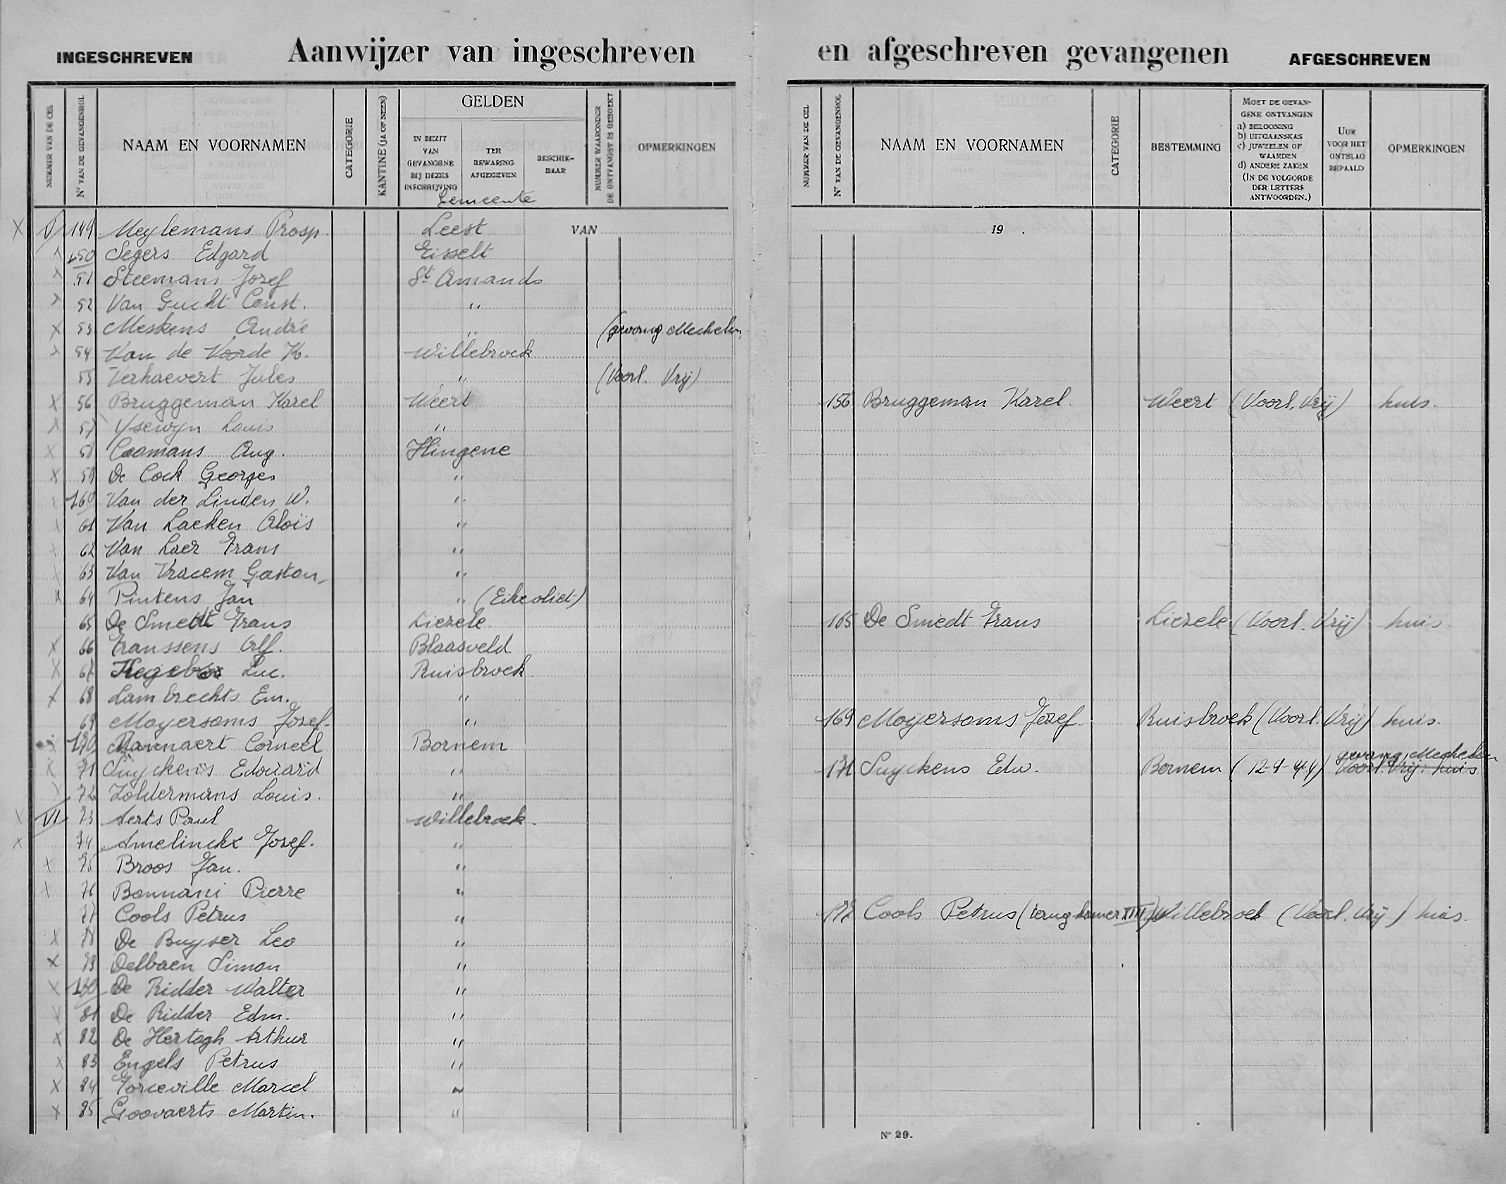 INGESCHREVEN
Aanwijzer van ingeschreven
NUMMER VAN DE CEL
Nr VAN DE GEVANGENROL
NAAM EN VOORNAMEN
CATEGORIE
KANTINE (JA OF NEEN)
GELDEN
IN BEZIT VAN GEVANGENE BIJ DEZES INSCHRIJVING
TER BEWARING AFGEGEVEN
BESCHIKBAAR
NUMMER WAARONDER DE ONTVANGST IS GEBOEKT
OPMERKINGEN
Gemeente
VAN
X V 149 Meylemans Prosp. Leest
X 150 Segers Edgard Eisselt
X 51 Steemans Jozef St Amands
X 52 Van Gucht Const. "
X 53 Meskens André " (gevang Mechelen
X 54 Van de Voorde K. Willebroek
55 Verhaevert Jules " (Voorl. Vrij)
X 56 Bruggeman Karel Weert
X 57 Ysewyn Louis "
X 58 Coomans Aug. Hingene
X 59 De Cock Georges "
160 Van der Linden W. "
61 Van Laeken Aloïs "
62 Van Laer Frans "
63 Van Vracem Gaston "
X 64 Pintens Jan " (Eikevliet)
65 De Smedt Frans Liezele
X 66 Franssens Alf. Blaasveld
X 67 Luc. Ruisbroek
X 68 Lambrechts Em. "
69 Moyersoms Jozef "
170 Mannaert Corneel Bornem
X 71 Luyckens Edouard "
72 Zoldermans Louis. "
X VI 73 Aerts Paul Willebroek
X 74 Amelinckx Jozef. "
X 75 Broos Jan. "
X 76 Bonnani Pierre "
77 Cools Petrus "
X 78 De Buyser Leo "
X 79 Delbaen Simon "
X 180 De Ridder Walter "
X 81 De Ridder Edm. "
X 82 De Hertogh Arthur "
X 83 Engels Petrus "
X 84 Forceville Marcel "
X 85 Goovaerts Martin. "
en afgeschreven gevangenen
AFGESCHREVEN
NUMMER VAN DE CEL
Nr VAN DE GEVANGENROL
NAAM EN VOORNAMEN
CATEGORIE
BESTEMMING
MOET DE GEVANGENE ONTVANGEN
a) BELOONING
b) UITGAANSKAS
c) JUWEELEN OF WAARDEN
d) ANDERE ZAKEN
(IN DE VOLGORDE DER LETTERS ANTWOORDEN.)
UUR VOOR HET ONTSLAG BEPAALD
OPMERKINGEN
19 .
156 Bruggeman Karel. Weert (Voorl. Vrij) huis.
165 De Smedt Frans Liezele (Voorl. Vrij) huis
169 Moyersoms Jozef. Ruisbroek (Voorl. Vrij) huis.
gevang. Mechelen
171 Luyckens Edw. Bornem (12-4-44) Voorl. Vrij. huis
177 Cools Petrus (terug kamer XIII) Willebroek (Voorl. Vrij) huis.
Nr 29.